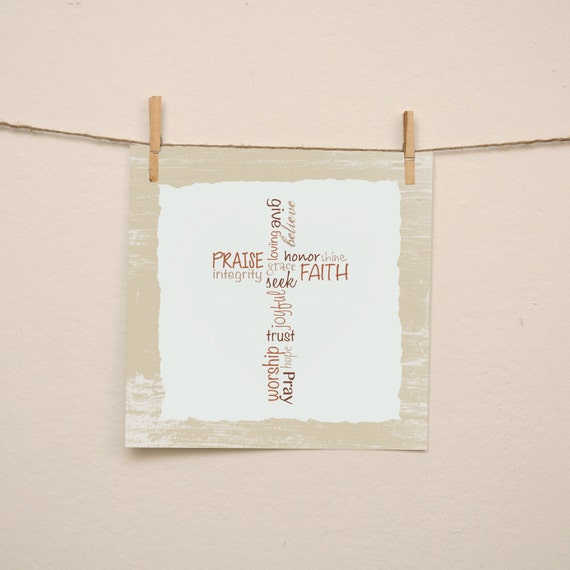 give
believe
loving
PRAISE
honor shine
grace
integrity
FAITH
seek
joyful
trust
worship
hope
Pray